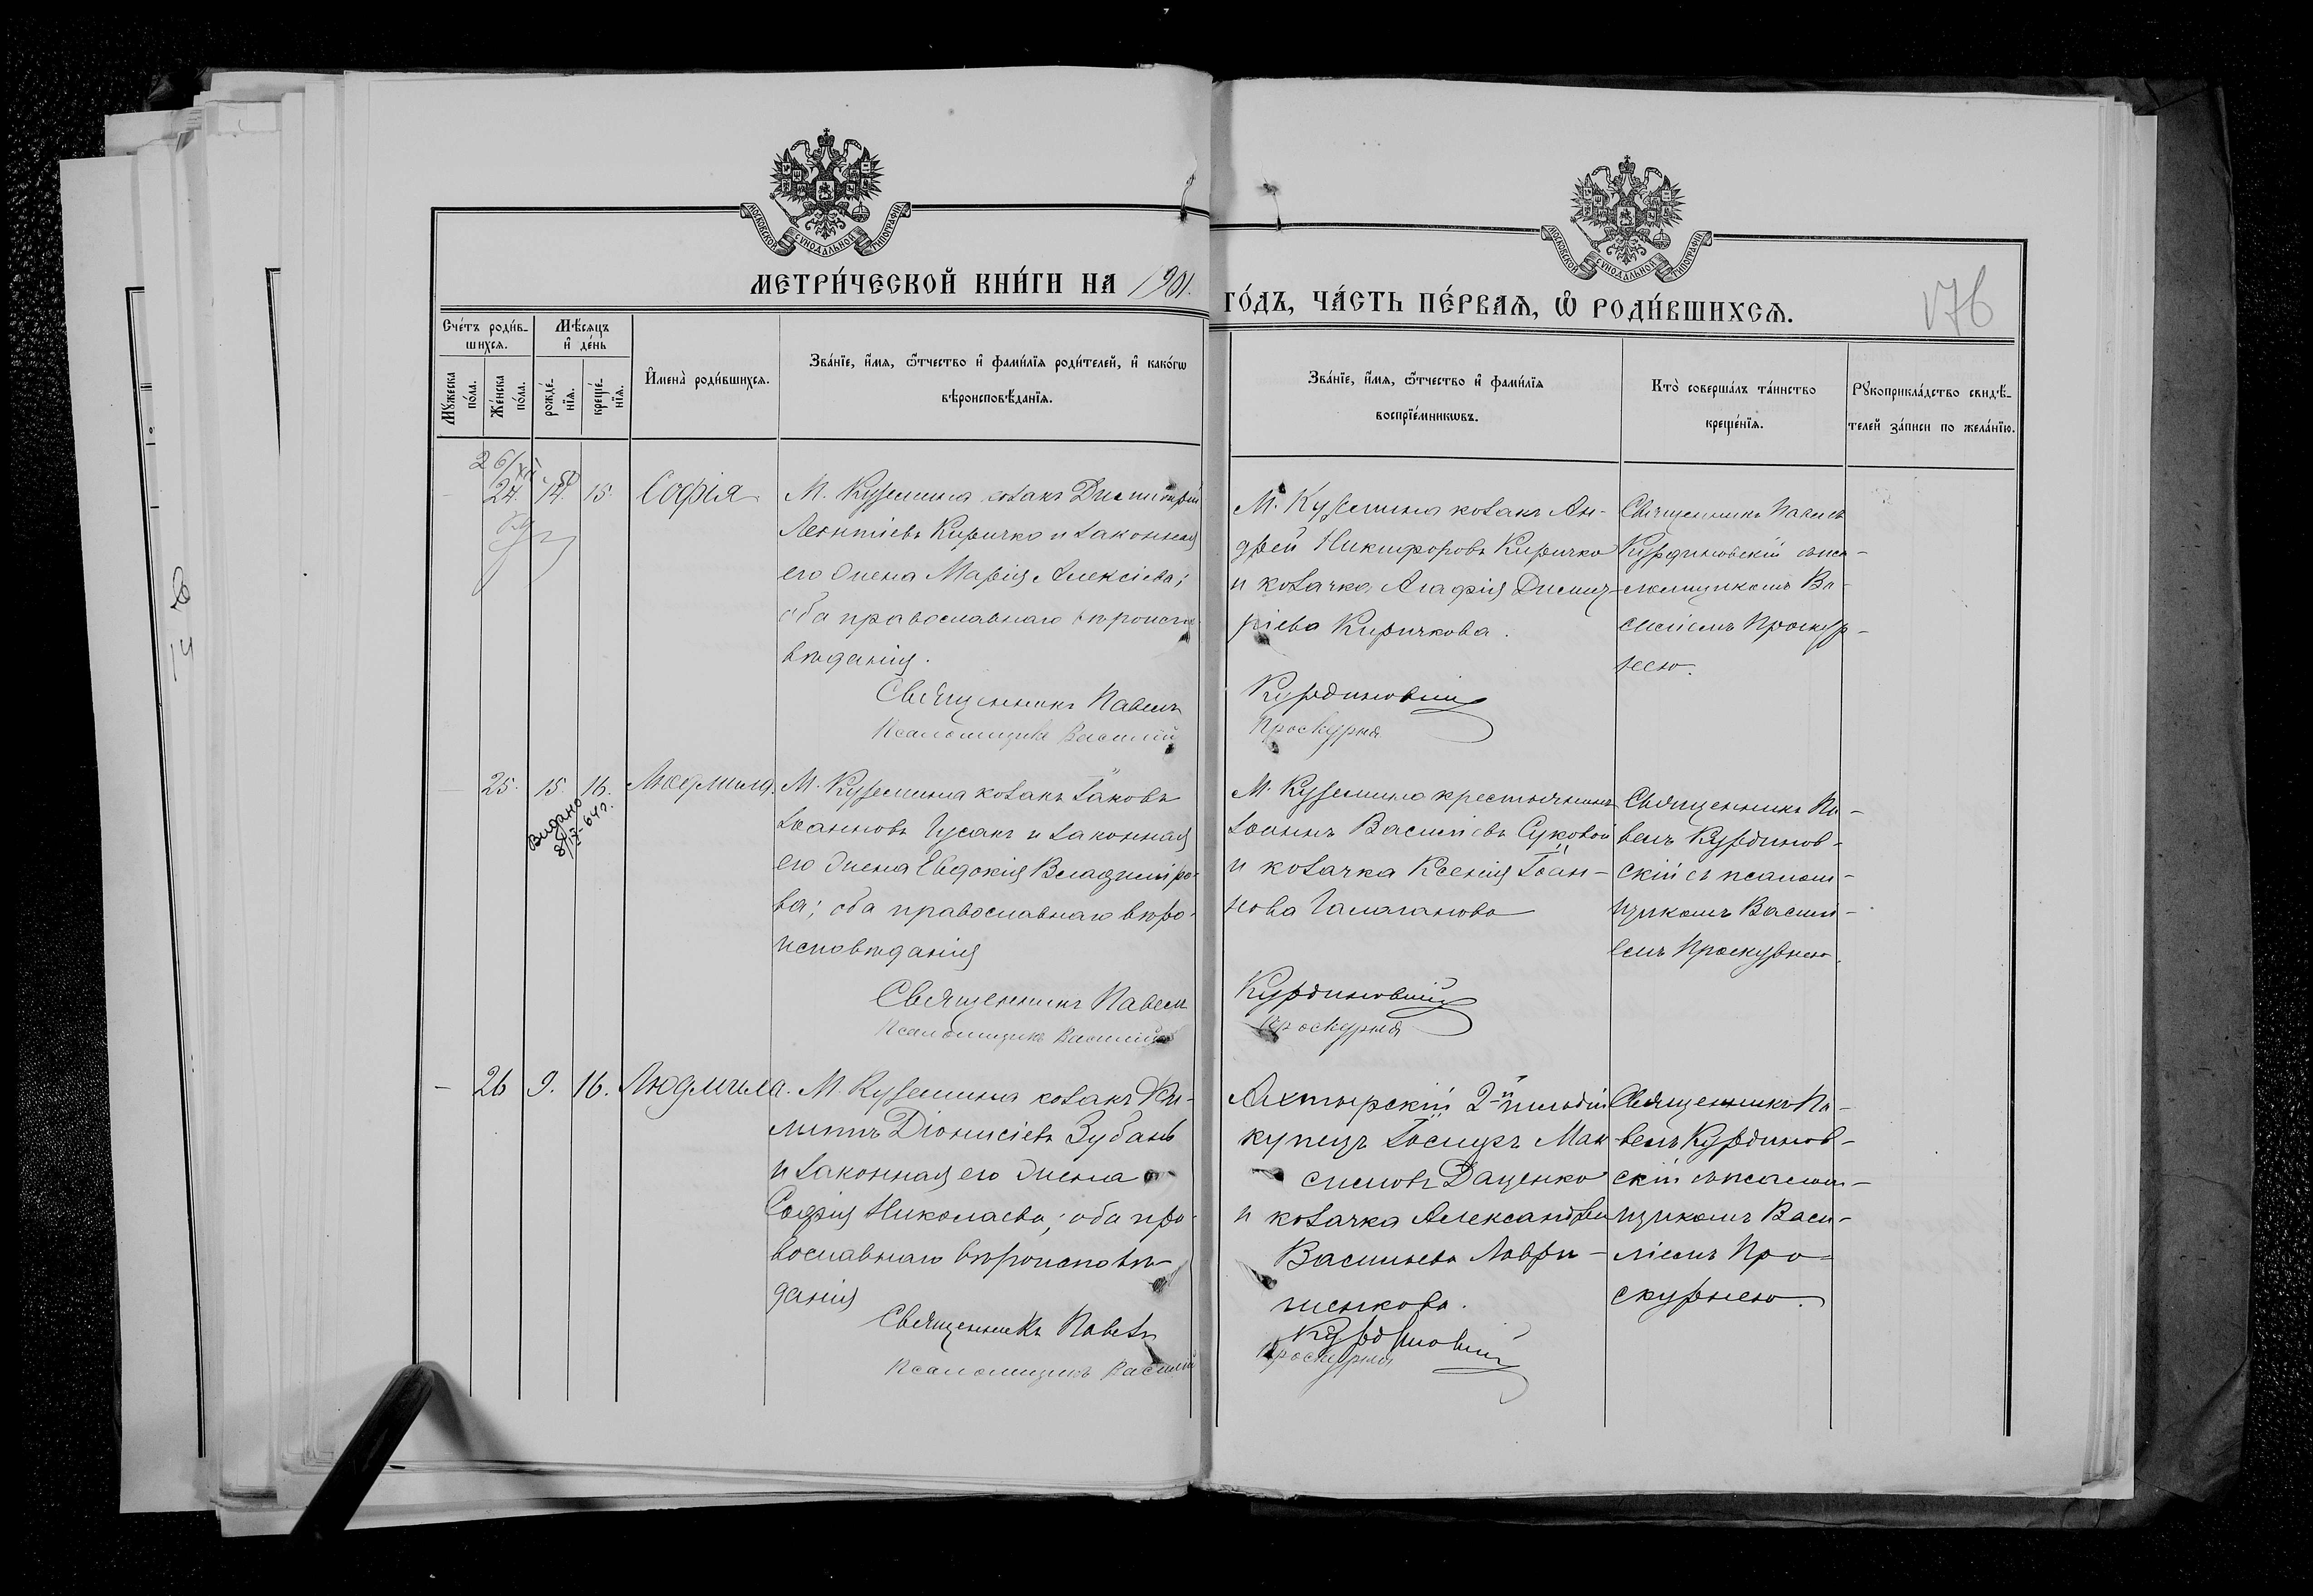 МОСКОВСКОЙ СУНОДАЛЬНОЙ ТИПОГРАФІИ
МОСКОВСКОЙ СУНОДАЛЬНОЙ ТИПОГРАФІИ
МЕТРИ́ЧЕСКОЙ КНИ́ГИ НА 1901.
ГО́ДЪ, ЧА́СТЬ ПЕ́РВАѦ, Ѡ РОДИ́ВШИХСѦ.
176
Сче́тъ роди́в-
шихсѧ.
Мѣ́сѧцъ
и҆ де́нь
Мꙋ́жеска
по́ла.
Же́нска
по́ла.
рожде́-
нїѧ.
креще́-
нїѧ.
И҆мена̀ роди́вшихсѧ.
Зва́нїе, и҆́мѧ, ѻ҆́тчество и҆ фами́лїѧ роди́телей, и҆ како́гѡ
вѣроисповѣ́данїѧ.
Зва́нїе, и҆́мѧ, ѻ҆́тчество и҆ фами́лїѧ
воспрїе́мникѡвъ.
Кто̀ соверша́лъ та́инство
креще́нїѧ.
Рꙋкоприкла́дство свидѣ́-
телей за́писи по жела́нїю.
24. 14. 15. Софія
М. Куземина козакъ Димитрій
Леонтіевъ Киричко и законная
его жена Марія Алексіева;
оба православнаго вѣроиспо-
вѣданія.
Священникъ Павелъ
Псаломщикъ Василій
М. Куземина козакъ Ан-
дрей Никифоровъ Киричко
и козачка Агафія Димит-
ріева Киричкова.
Курдиновскій
Проскурня
Священникъ Павелъ
Курдиновскій съ пса-
ломщикомъ Ва-
силіемъ Проскур-
нею.
25. 15. 16. Людмила.
Видано
8/IX-64 г.
М. Куземина козакъ Іаковъ
Іоанновъ Гусакъ и законная
его жена Евдокія Владиміро-
ва; оба православнаго вѣро-
исповѣданія
Священникъ Павелъ
Псаломщикъ Василій
М. Куземина крестьянинъ
Іоаннъ Васильевъ Суковой
и козачка Ксенія Іоан-
нова Галаганова
Курдиновскій
Проскурня
Священникъ Па-
велъ Курдинов-
скій съ псалом-
щикомъ Василі-
емъ Проскурнею.
– 26 9. 16. Людмила.
М. Куземина козакъ Фи-
липпъ Діонисіевъ Зубань
и законная его жена
Софія Николаева; оба пра-
вославнаго вѣроисповѣ-
данія
Священникъ Павелъ
Псаломщикъ Василій
Ахтырскій 2-й гильдіи
купецъ Іосифъ Мак-
симовъ Даценко
и козачка Александра
Васильева Лаври-
ненкова.
Курдиновскій
Проскурня
Священникъ Па-
велъ Курдинов-
скій съ псалом-
щикомъ Васи-
ліемъ Про-
скурнею.
14